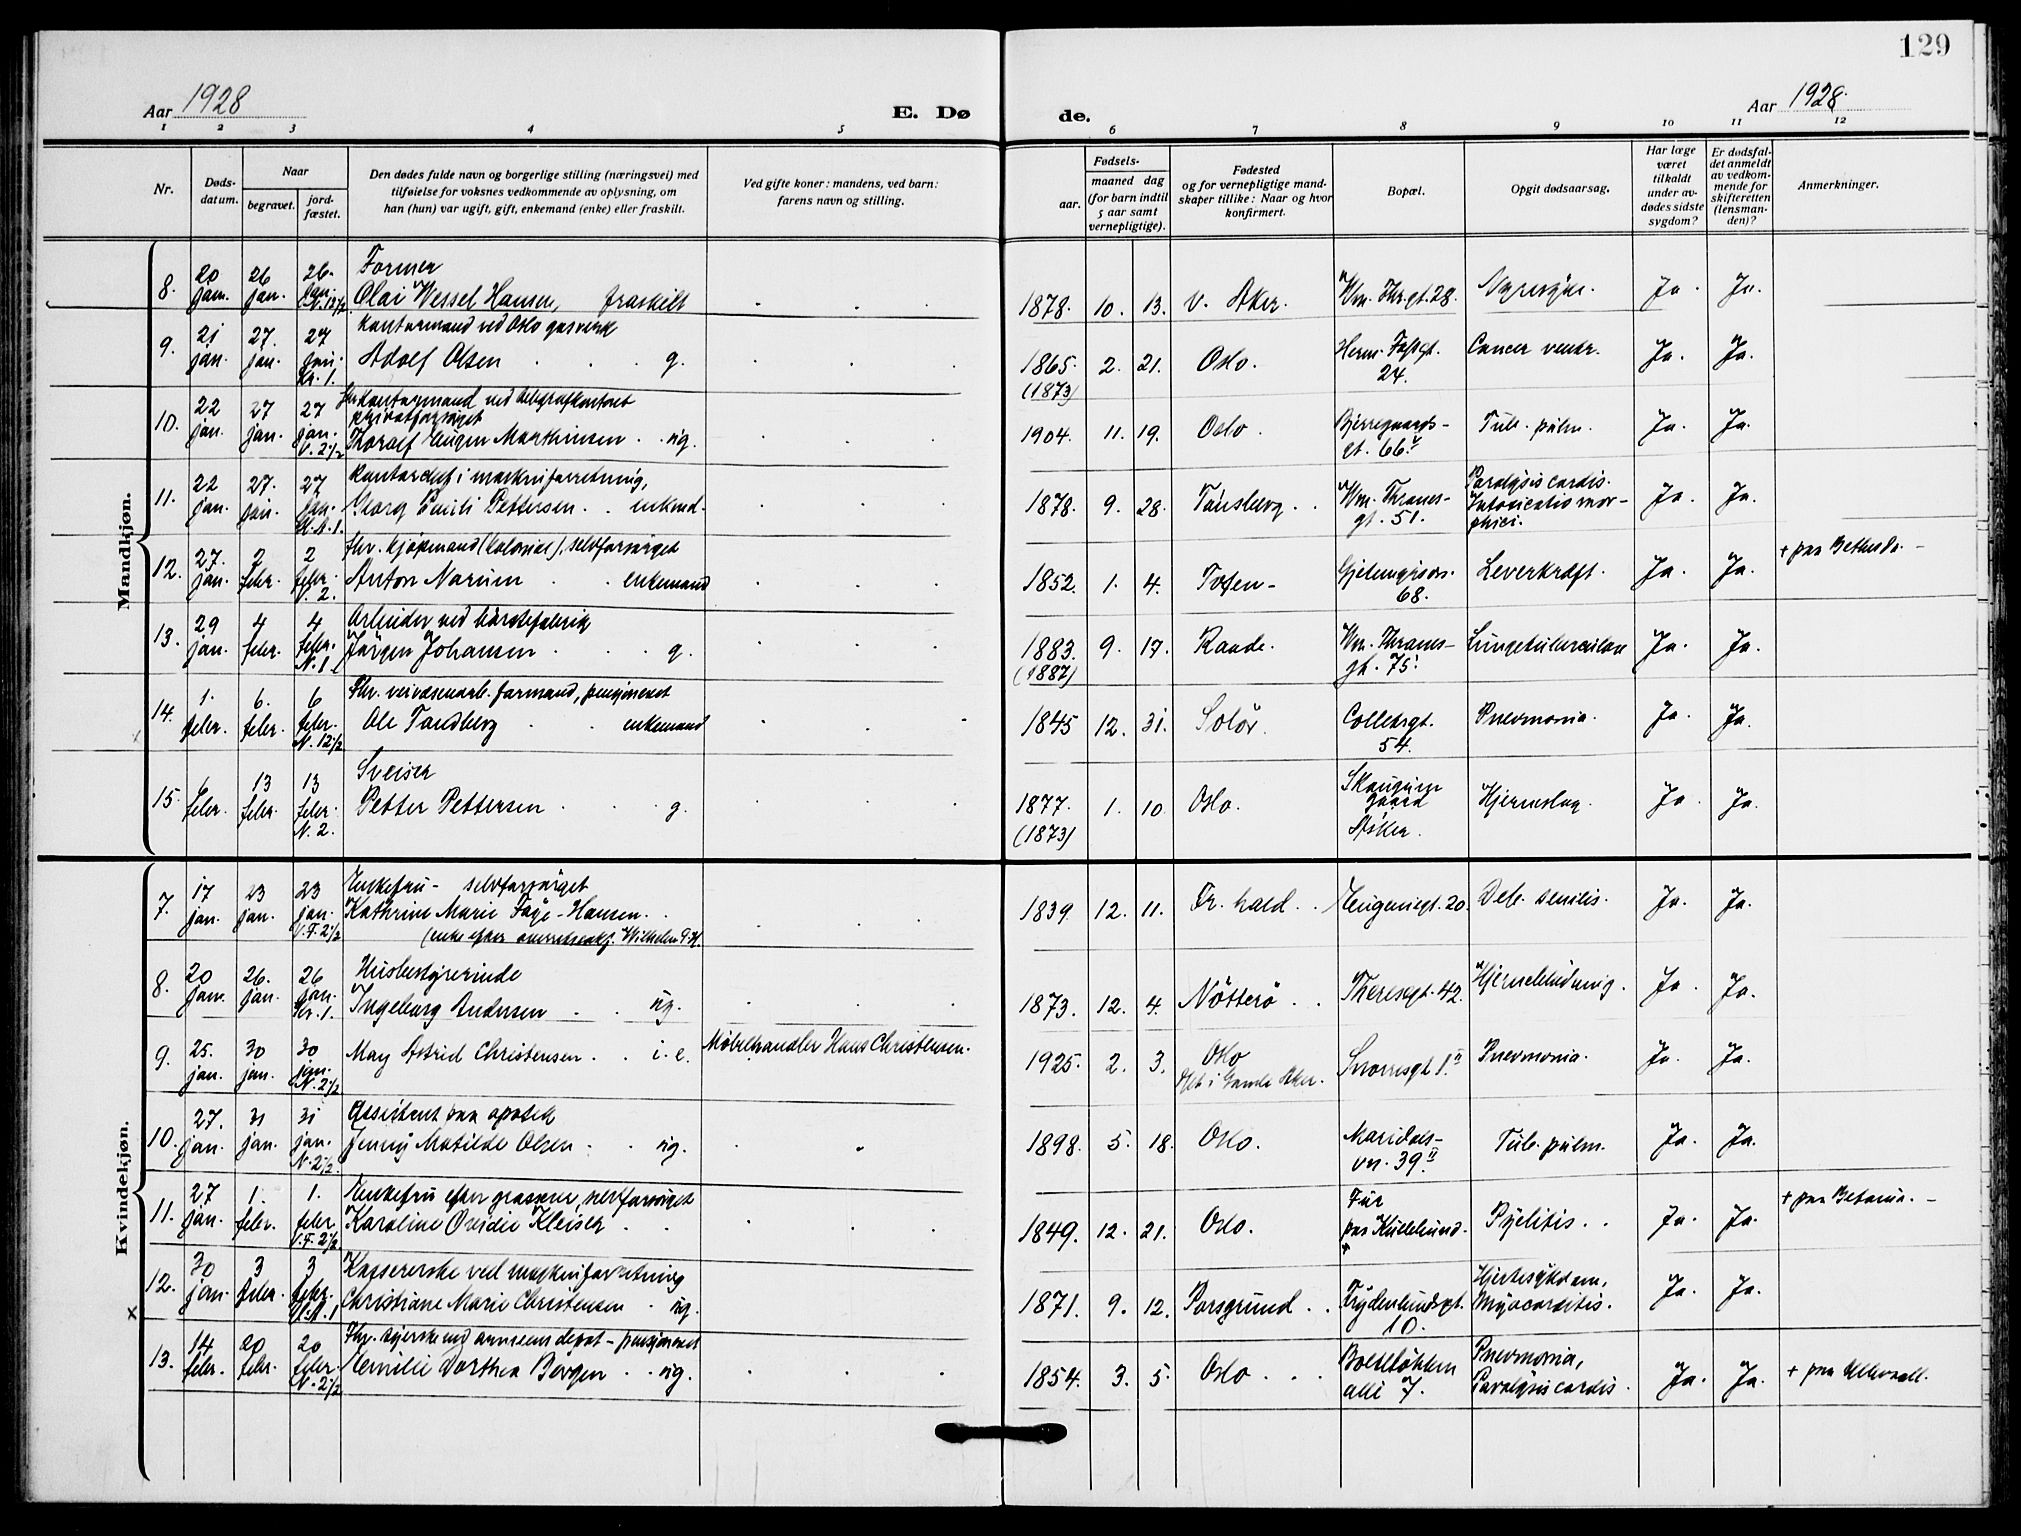 129
Aar 1928
E. Dø
de.
Aar 1928.
1 2 3 4 5 6 7 8 9 10 11 12
Nr.
Døds-
datum.
Naar
begravet.
jord-
fæstet.
Den dødes fulde navn og borgerlige stilling (næringsvei) med
tilføielse for voksnes vedkommende av oplysning, om
han (hun) var ugift, gift, enkemand (enke) eller fraskilt.
Ved gifte koner: mandens, ved barn:
farens navn og stilling.
Fødsels-
aar.
maaned dag
(for barn indtil
5 aar samt
vernepligtige).
Fødested
og for vernepligtige mand-
skaper tillike: Naar og hvor
konfirmert.
Bopæl.
Opgit dødsaarsag.
Har læge
været
tilkaldt
under av-
dødes sidste
sygdom?
Er dødsfal-
det anmeldt
av vedkom-
mende for
skifteretten
(lensman-
den)?
Anmerkninger.
Mandkjøn.
8. 20 jan. 26 jan. 26. jan. N. 12½
Former
Olai Wessel Hansen, fraskilt
1878. 10. 13. V. Aker. Wm. Thr.gt. 28. Nyresyke. Ja. Ja.
9. 21 jan. 27. jan. 27 jan. Kr. 1.
Kontormand ved Oslo gasverk
Adolf Olsen g.
1865. (1873) 2. 21. Oslo. Herm. Fossgt. 24. Cancer ventr. Ja. Ja.
10. 22 jan. 27 jan. 27 jan. V. 2½
kontormand ved telegrafkontoret
privatforsørget
Thoralf Eugen Marthinsen ug.
1904. 11. 19. Oslo. Bjerregaards-
gt. 66 Tub. pulm. Ja. Ja.
11. 22 jan. 27. jan. 27 jan. 1.
Kontorchef i maskinforretning,
Georg Emil Pettersen enkmd.
1878. 9. 28. Tønsberg. Wm. Thranes-
gt. 51. Paralysis cordis.
Intoxicatio mor-
phici. Ja. Ja.
12. 27. jan. 2 febr. 2 febr. V. 2.
Fhr. kjøpmand (kolonial), selvforsørget
Anton Narum enkemand
1852. 1. 4. Toten - 68. Leverkræft. Ja. Ja. + paa Bethesda. -
13. 29 jan. 4 febr. 4 febr. N. 1
Arbeider ved børstefabrik
Jørgen Johansen g.
1883. (1887) 9. 17. Raade. Wm. Thranes-
gt. 75. Lungetuberculose Ja. Ja.
14. 1. febr. 6. febr. 6 febr. N. 12½
Fhr. veivæsenarb. formand, pensjoneret
Ole Tandberg enkemand
1845 12. 31. Solør. Colletsgt.
54. Pnevmonia. Ja. Ja.
15. 6 febr. 13 febr. 13 febr. N. 2.
Sveiser
Petter Pettersen g.
1877. (1873) 1. 10 Oslo. Skaugum
gaard
Asker. Hjerneslag. Ja. Ja.
Kvindekjøn.
7. 17 jan. 23 jan. 23 jan. V.F. 2½
Enkefru - selvforsørget
Kathrine Marie Faye-Hansen.
(enke efter overretssakf. Wilhelm F.H.
1839. 12. 11. Fr. hald. Eugeniegt. 20. Deb. senilis. Ja. Ja.
8. 20 jan. 26. jan. 26 jan. Kr. 1.
Husbestyrerinde
Ingeborg Andersen ug.
1873. 12. 4. Nøtterø. Theresgt. 42. Hjerneblødning. Ja. Ja.
9. 25. jan. 30 jan. 30 jan. N. 2½
May Astrid Christensen i. e. Møbelhandler Hans Christensen.
1925. 2. 3. Oslo
Døbt i Gamle Aker. Snorresgt 1. II Pnevmonia. Ja. Ja.
10. 27. jan. 31 jan. 31 jan. N. 2½
Assistent paa apotek
Jenny Matilde Olsen ug.
1898. 5. 18. Oslo. Maridals-
vn. 39. II Tub. pulm. Ja. Ja.
11. 27 jan. 1. febr. 1. febr V.F. 2½
Enkefru efter grosserer, selvforsørget
Karoline Ovidie Kleiser
1849. 12. 21. Oslo. Fur
paa Kullebund. Pyelitis. Ja. Ja. + paa Betania. -
12. 30 jan. 3 febr. 3 febr. V.A. 1
Kassererske ved maskinforretning
Christiane Marie Christensen ug.
1871. 9. 12. Porsgrund. Frydenlundsgt.
10. Hjertesykdom,
Myocarditis. Ja. Ja.
x
13. 14 febr. 20 febr. 20 febr. N. 2½
Fhr. syerske ved armeens depot - pensjoneret
Emilie Dorthea Børgen ug.
1854. 3. 5. Oslo Bolteløkken
alle 7. Pnevmonia,
Paralysis cordis. Ja. Ja. + paa Ullevaal.